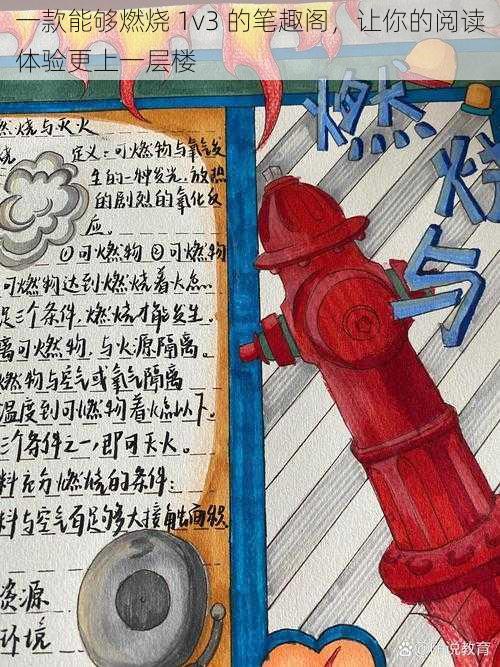 一款能够燃烧 1v3 的笔趣阁，让你的阅读
体验更上一层楼
燃烧与
然烧与灭火
烧
定义：可燃物与氧气发
生的一种发光、放热
的剧烈的氧化反
应。
①可燃物 ②可燃物
可燃物达到燃烧着火点
三个条件，燃烧才能发生。
离可燃物，与火源隔离。
燃物与空气或氧气隔离
温度到可燃物着火点以下。
三个条件之一，即可灭火。
料充分燃烧的条件：
料与空气有足够大接触面积
资源
环境
说教育